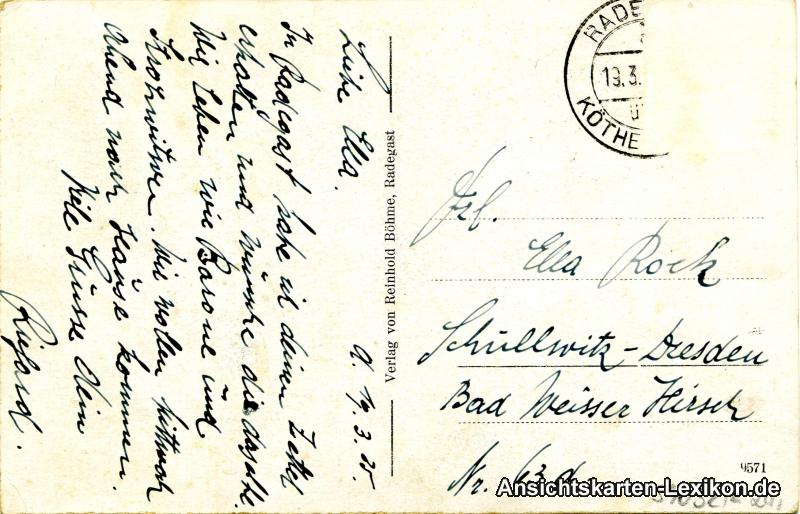 Liebe Ella.
d. 19.3.25.
In Radegast habe ich deinen Zettel
erhalten und wünsche dir dasselbe.
Wir leben wie Barone und
Strohwitwer. Wir wollen Mittwoch
Abend nach Hause kommen.
Viele Grüsse Dein
Richard.
Verlag von Reinhold Böhme, Radegast
RADE
19.3.
KÖTHE
Frl.
Ella Rock
Schullwitz-Dresden
Bad Weisser Hirsch
Nr. 63 d
9571
Ansichtskarten-Lexikon.de